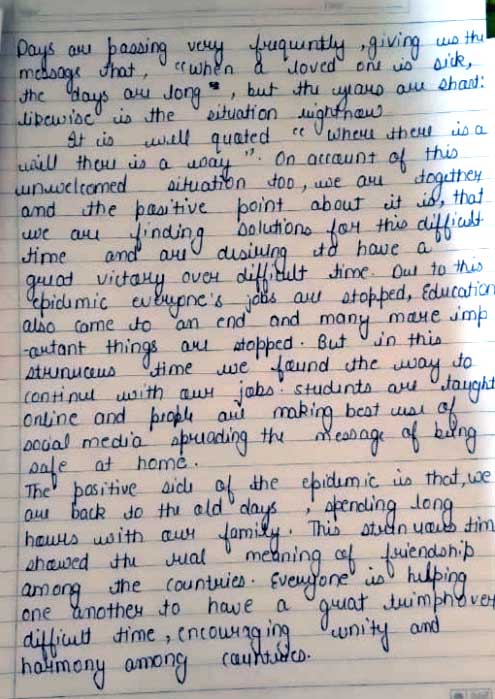 Days are passing very frequently, giving us the
message that, "when a loved one is sick,
the days are long", but the years are short:
likewise is the situation rightnow
It is well quoted "Where there is a
will there is a way". On account of this
unwelcomed situation too, we are together
and the positive point about it is, that
we are finding solutions for this difficult
time and are desiring to have a
great victory over difficult time. Due to this
epidemic everyone's jobs are stopped, Education
also came to an end and many more imp
-ortant things are stopped. But in this
strenuous time we found the way to
continue with our jobs. Students are taught
online and people are making best use of
social media spreading the message of being
safe at home.
The positive side of the epidemic is that, we
are back to the old days, spending long
hours with our family. This strenuous tim
showed the real meaning of friendship
among the countries. Everyone is helping
one another to have a great triumph over
difficult time, encouraging unity and
harmony among countries.